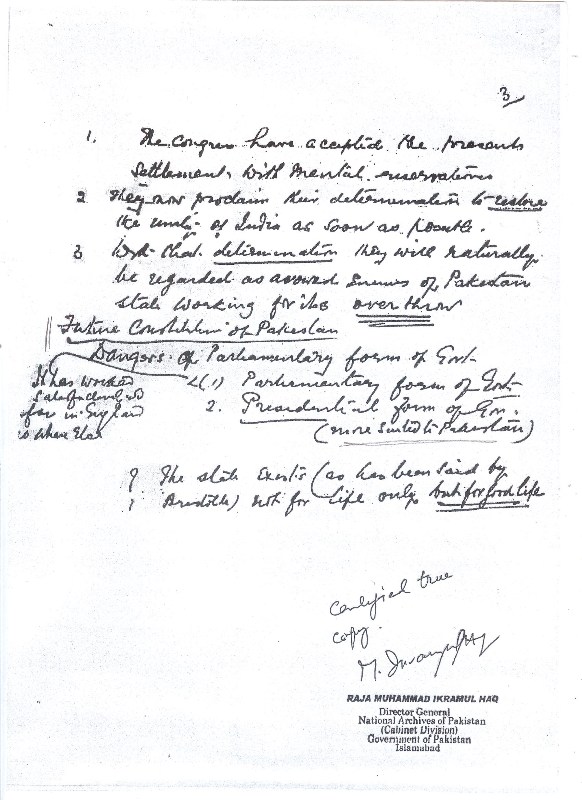 3
1. The Congress have accepted the present
Settlement with mental reservations
2 They now proclaim their determination to restore
the unity of India as soon as possible.
3 With that determination they will naturally
be regarded as avowed Enemies of Pakistan
State working for its overthrow
Future Constitution of Pakistan
Dangers of Parliamentary form of Govt-
(1) Parliamentary form of Govt-
2. Presidential form of Gov.
(more suited to Pakistan)
It has worked
satisfactorily so
far in England
no where else
The state exists (as has been said by
Aristotle) not for life only but for good life
Certified true
copy.
RAJA MUHAMMAD IKRAMUL HAQ
Director General
National Archives of Pakistan
(Cabinet Division)
Government of Pakistan
Islamabad